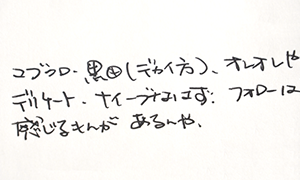 コブクロ・黒田(デカイ方)、オレオレや
デリケート・ナイーブなはず: フォローは
感じるもんが あるんや、